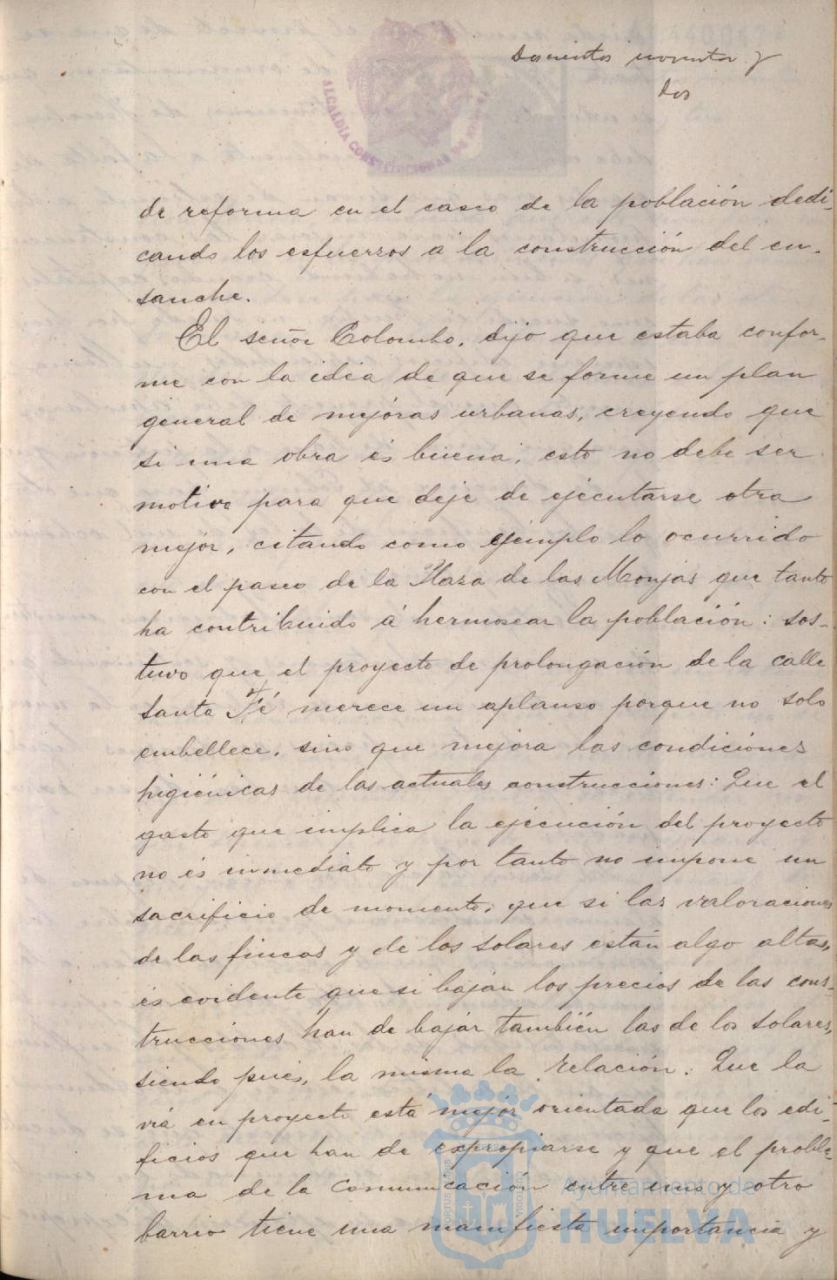 Doscientos noventa y
dos
ALCALDÍA CONSTITUCIONAL DE
de reforma en el casco de la población dedi-
cando los esfuerzos á la construcción del en-
sanche.
El señor Colombo, dijo que estaba confor-
me con la idea de que se forme un plan
general de mejóras urbanas, creyendo que
si una obra és buena, esto no debe ser
motivo para que deje de ejecutarse otra
mejór, citando como ejémplo lo ocurrido
con el paseo de la Plaza de las Monjas que tanto
ha contribuido á hermosear la población: sos-
tuvo que el proyecto de prolongación de la calle
Santa Fé merece un aplauso porque no solo
embellece, sino que mejora las condiciones
higiénicas de las actuales construcciones: Que el
gasto que implica la ejecución del proyecto
no és inmediato y por tanto no impone un
sacrificio de momento; que si las valoraciones
de las fincas y de los solares están algo altas,
és evidente que si baján los precios de las cons-
trucciones, han de bajár también las de los solares,
siendo pués, la misma la relación. Que la
vía en proyecto está mejór orientada que los edi-
ficios que han de expropiarse y que el proble-
ma de la comunicación entre uno y otro
barrio tiene una manifiesta importancia y
Ayuntamiento de
HUELVA